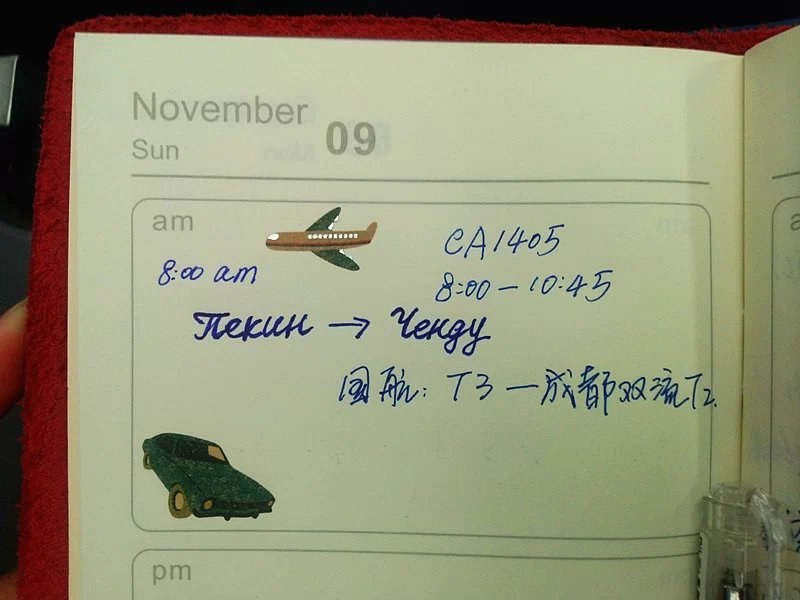 November
Sun 09
am
8:00 am
CA1405
8:00 — 10:45
Пекин → Ченду
国航: T3 — 成都双流T2
pm